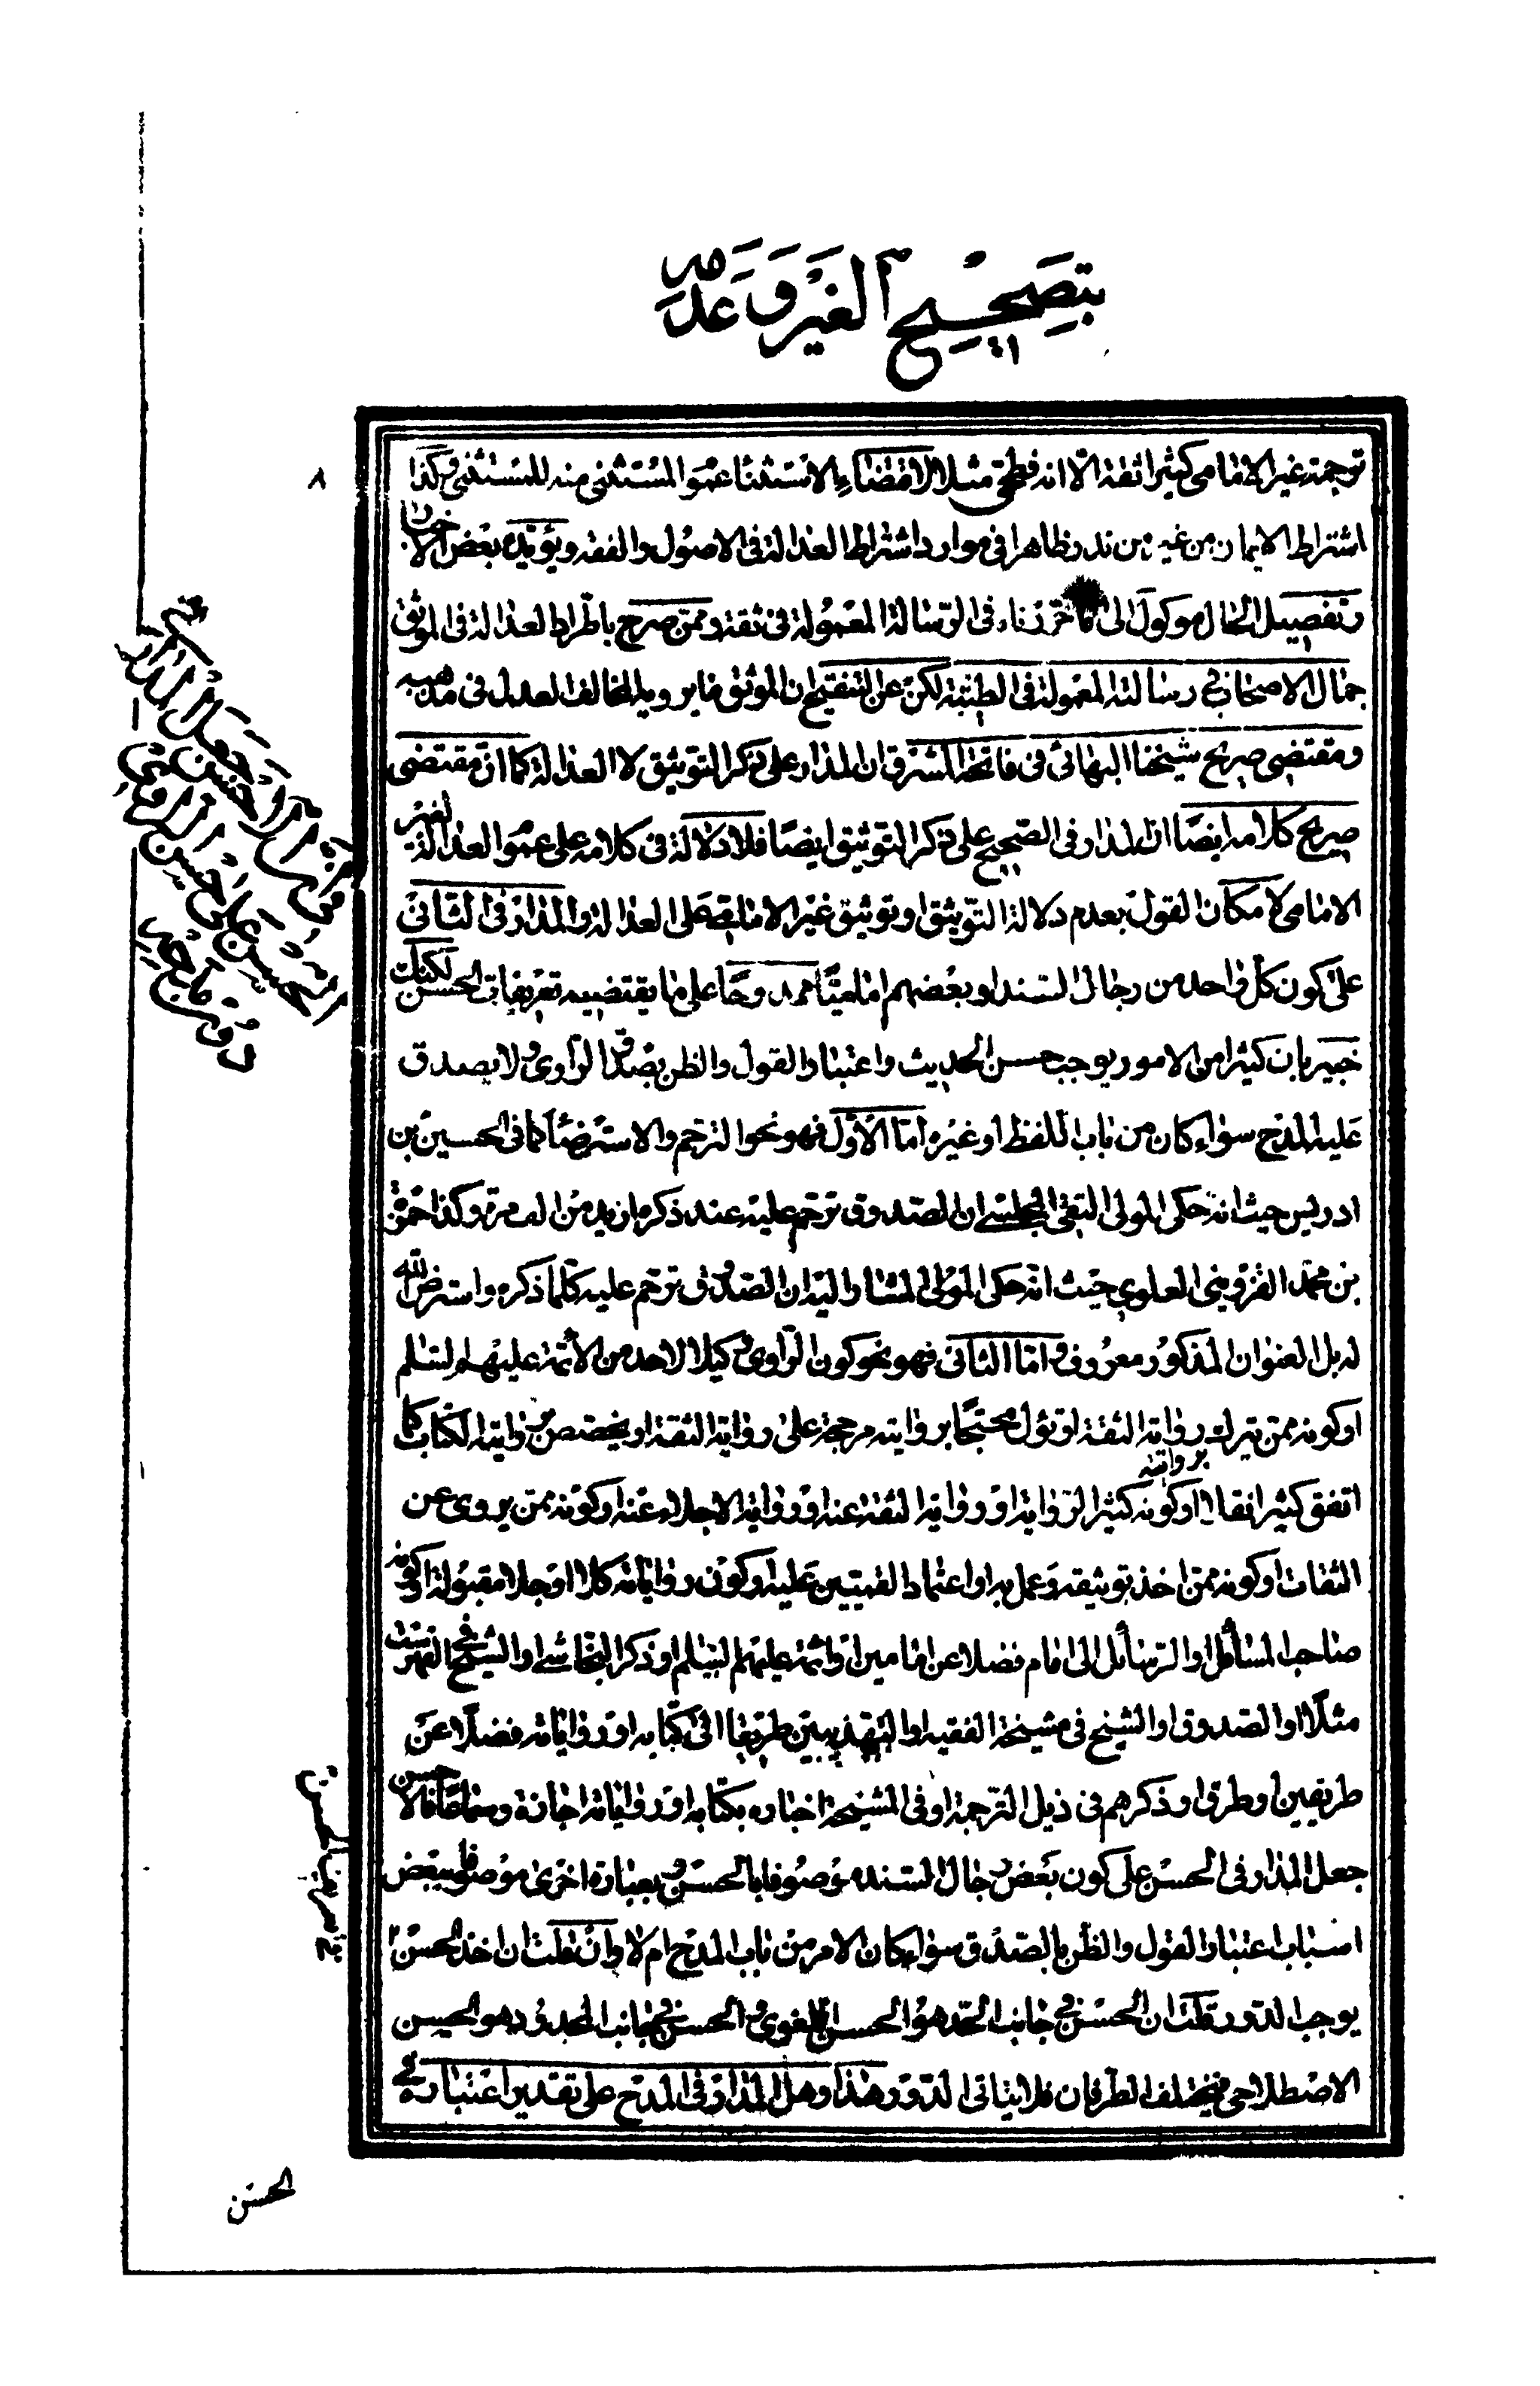 بتصحيح الغير وعدمه
٨
ترجمة غير الامامى كثيرا ثقة الّا انه فطحى مثلا لاقتضاء الاستثناء عموم المستثنى منه للمستثنى وكذا
اشتراط الايمان من غير من ندر ظاهرا فى موارد اشتراط العدالة فى الاصول والفقه ويؤيده بعض
وتفصيل الحال موكول الى ما حررناه فى الرسالة المعمولة فى ثقة وممن صرح باطراد العدالة فى الموثق
جمال الاصحاب فى رسالته المعمولة فى الطينة لكن عن التنقيح ان الموثق ما يرويه المخالف العدل فى مذهبه
ومقتضى صريح شيخنا البهائى فى فاتحة المشرق ان المدار على ذكر التوثيق لا العدالة كما ان مقتضى
صريح كلامه ايضا ان المدار فى الصحيح على ذكر التوثيق ايضا فلا دلالة فى كلامه على عموم العدالة لغير
الامامى لامكان القول بعدم دلالة التوثيق او توثيق غير الامامى على العدالة والمدار فى الثانى
على كون كل واحد من رجال السند او بعضهم اماميا ممدوحا على ما يقتضيه تعريفات الحسن لكنك
خبير بان كثيرا من الامور يوجب حسن الحديث واعتبار القول والظن بصدق الراوى ولا يصدق
عليه المدح سواء كان من باب اللفظ او غيره امّا الاوّل فهو نحو الترحم والاسترضاء كما فى الحسين بن
ادريس حيث انه حكى المولى التقى المجلسى ان الصدوق ترحم عليه عند ذكره ازيد من الف مرة وكذا حمزة
بن محمد القزوينى العلوى حيث انه حكى المولى المشار اليه ان الصدوق ترحم عليه كلّما ذكره واسترضى الله
له بل العنوان المذكور معروف وامّا الثانى فهو نحو كون الراوى وكيلا لاحد من الائمة عليهم السلم
او كونه ممن يترك رواية الثقة او تؤل محتجا بروايته مرجحة على رواية الثقة او يخصص بروايته الكتاب كما
اتفق كثيرا او كونه كثير الرواية او رواية الثقة عنه او رواية الاجلاء عنه او كونه ممن يروى عن
الثقات او كونه ممن اخذ بتوثيقه وعمل به او اعتماد القميين عليه او كون رواياته كلا او جلا مقبولة او كونه
صاحب المسائل او الرسائل الى امام فضلا عن امامين او ائمة عليهم السلم او ذكر النجاشى او الشيخ فى الفهرست
مثلا او الصدوق او الشيخ فى مشيخة الفقيه او التهذيبين طريقا الى كتابه او رواياته فضلا عن
طريقين او طرق او ذكرهم فى ذيل الترجمة او فى المشيخة اخباره بكتابه او رواياته اجازة وسماعا فالاحسن
جعل المدار فى الحسن على كون بعض رجال السند موصوفا بالحسن وبعبارة اخرى موصوفا ببعض
اسباب اعتبار القول والظن بالصدق سواء كان الامر من باب المدح ام لا وان قلت ان اخذ الحسن
يوجب الدور قلت ان الحسن فى جانب الحد هو الحسن اللغوى والحسن فى جانب المحدود هو الحسن
الاصطلاحى فيختلف الطرفان فلا يتاتى الدور هذا وهل المدار فى المدح على تقدير اعتباره فى
الحسن